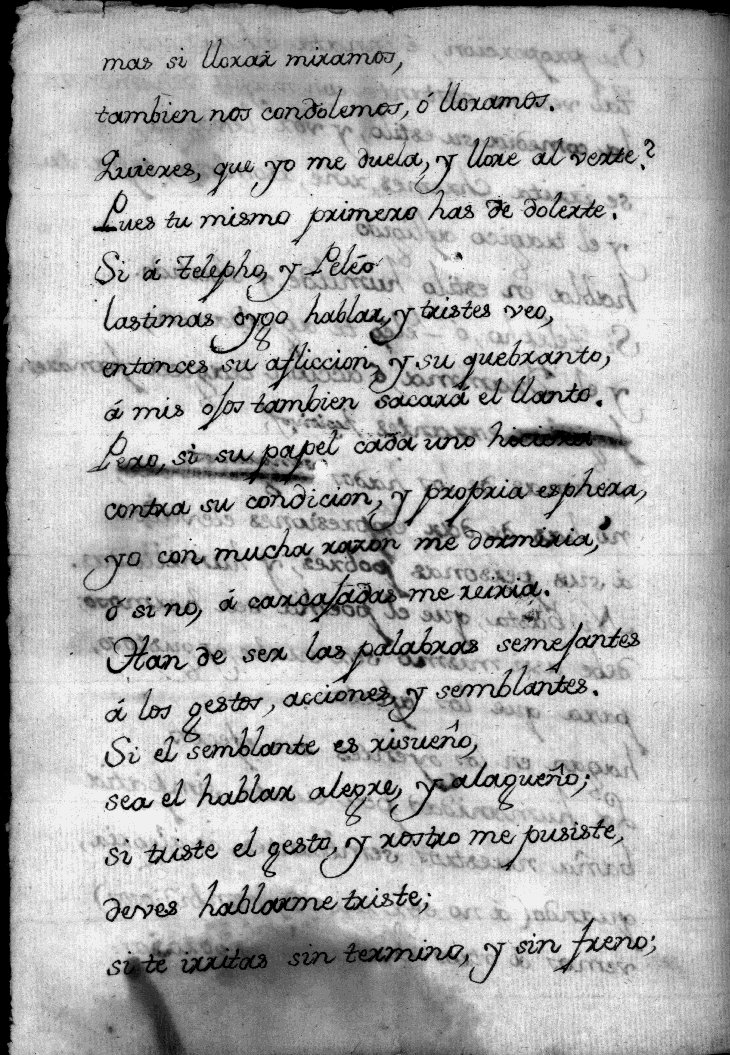 mas si llorar miramos,
tambien nos condolemos, ó lloramos.
Quieres, que yo me duela, y llore al verte?
Pues tu mismo primero has de dolerte.
Si á Telepho, y Peléo
lastimas oygo hablar, y tristes veo,
entonces su afliccion, y su quebranto,
á mis ojos tambien sacará el llanto.
Pero, si su papel cada uno hiciera
contra su condicion, y propria esphera,
yo con mucha razon me dormiria,
o si no, á carcajadas me reiria.
Han de ser las palabras semejantes
á los gestos, acciones, y semblantes.
Si el semblante es risueño,
sea el hablar alegre, y alagueño;
si triste el gesto, y rostro me pusiste,
deves hablarme triste;
si te irritas sin termino, y sin freno;